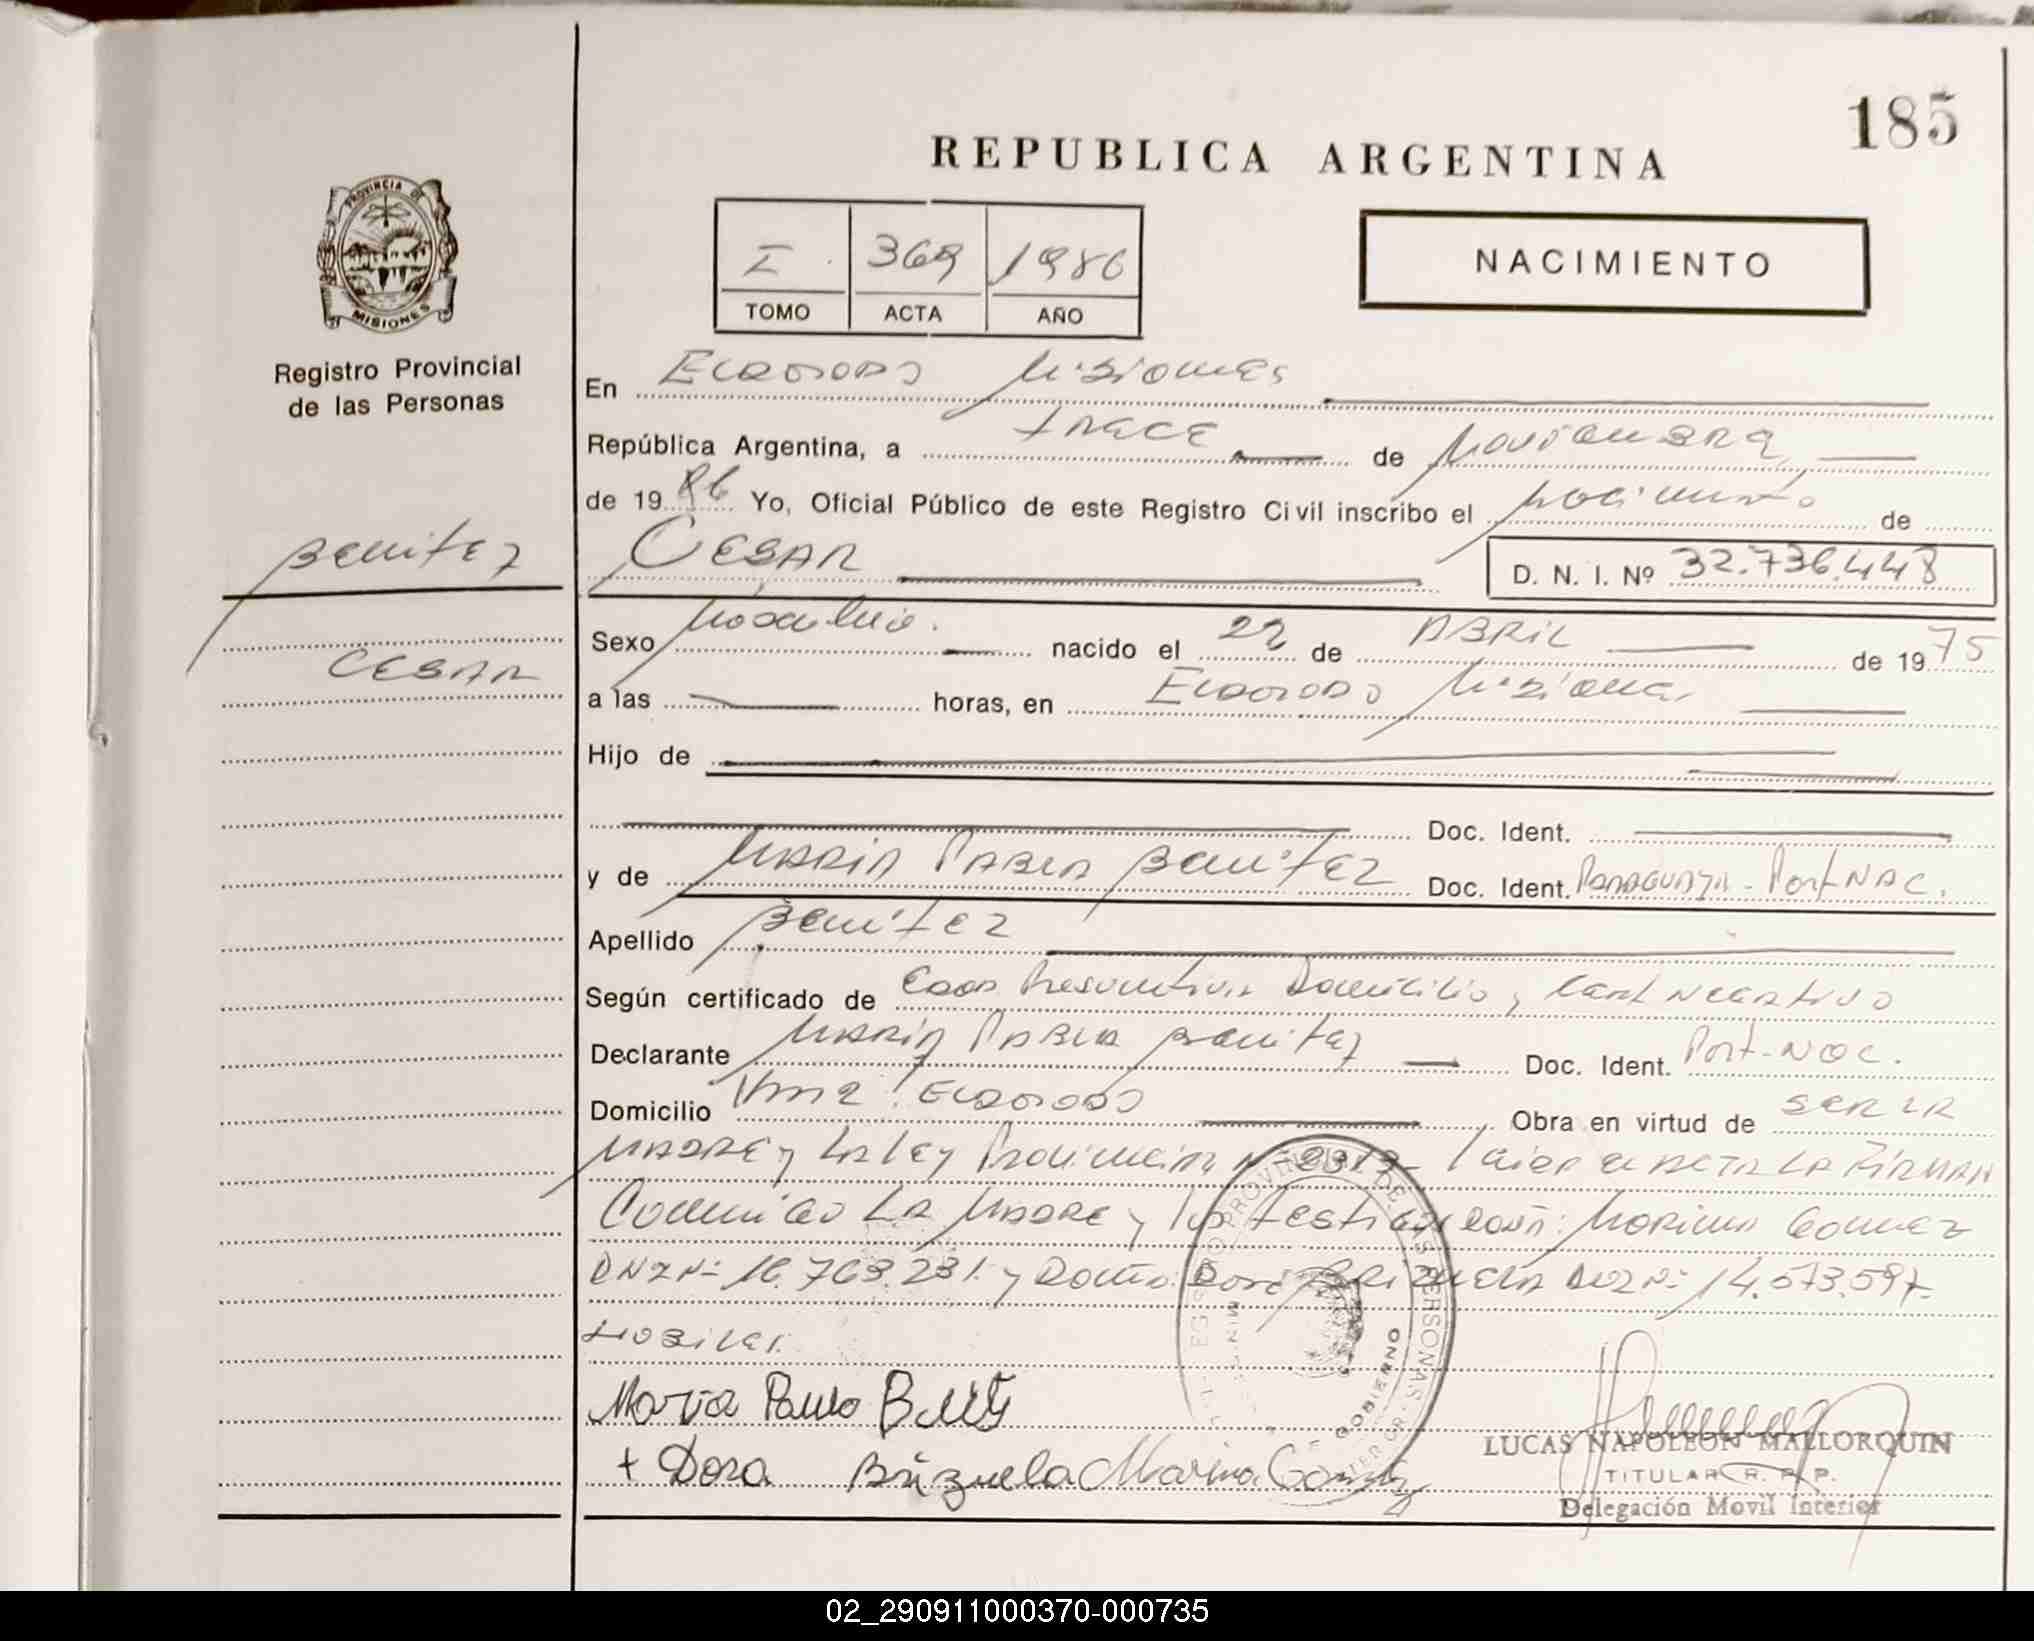 185
REPUBLICA ARGENTINA
PROVINCIA DE
MISIONES
Registro Provincial
de las Personas
I 369 1986
TOMO ACTA AÑO
NACIMIENTO
En Eldorado Misiones
República Argentina, a trece de Noviembre
de 1986 Yo, Oficial Público de este Registro Civil inscribo el Nacimiento de
Benitez
CESAR
D. N. I. Nº 32.736.448
Sexo Masculino. nacido el 22 de ABRIL de 1975
CESAR
a las horas, en Eldorado Misiones
Hijo de
Doc. Ident.
y de MARIA PABLA Benitez Doc. Ident. PARAGUAYA - Port-NAC.
Apellido Benitez
Según certificado de Edad Presuntiva Domicilio y Cert Negativo
Declarante MARIA PABLA Benitez Doc. Ident. Port-NAC.
Domicilio Eldorado Obra en virtud de SER LA
MADRE y LA Ley Provincial Nº el ACTA LA FIRMAN
Conmigo LA MADRE y los testigos Marina Gomez
DNI Nº 16.763.231. y Doña Dora Brizuela DNI Nº 14.573.597-
Maria Benitez
+ Dora Brizuela Marina Gomez
LUCAS NAPOLEON MALLORQUIN
TITULAR R. P. P.
Delegación Movil Interior
02_290911000370-000735